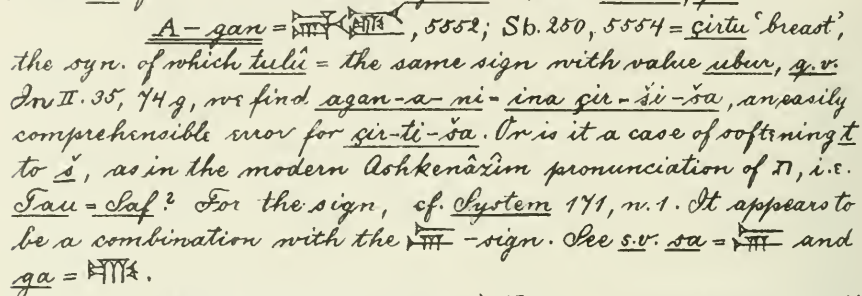 A-gan = , 5552; Sb. 250, 5554 = çirtu 'breast',
the syn. of which tulû = the same sign with value ubur, q.v.
In II. 35, 74 g, we find agan-a-ni = ina çir-ši-ša, an easily
comprehensible error for çir-ti-ša. Or is it a case of softening t
to š, as in the modern Ashkenâzîm pronunciation of ת, i.e.
Tau = Saf? For the sign, cf. System 171, n. 1. It appears to
be a combination with the -sign. See s.v. sa = and
ga = .